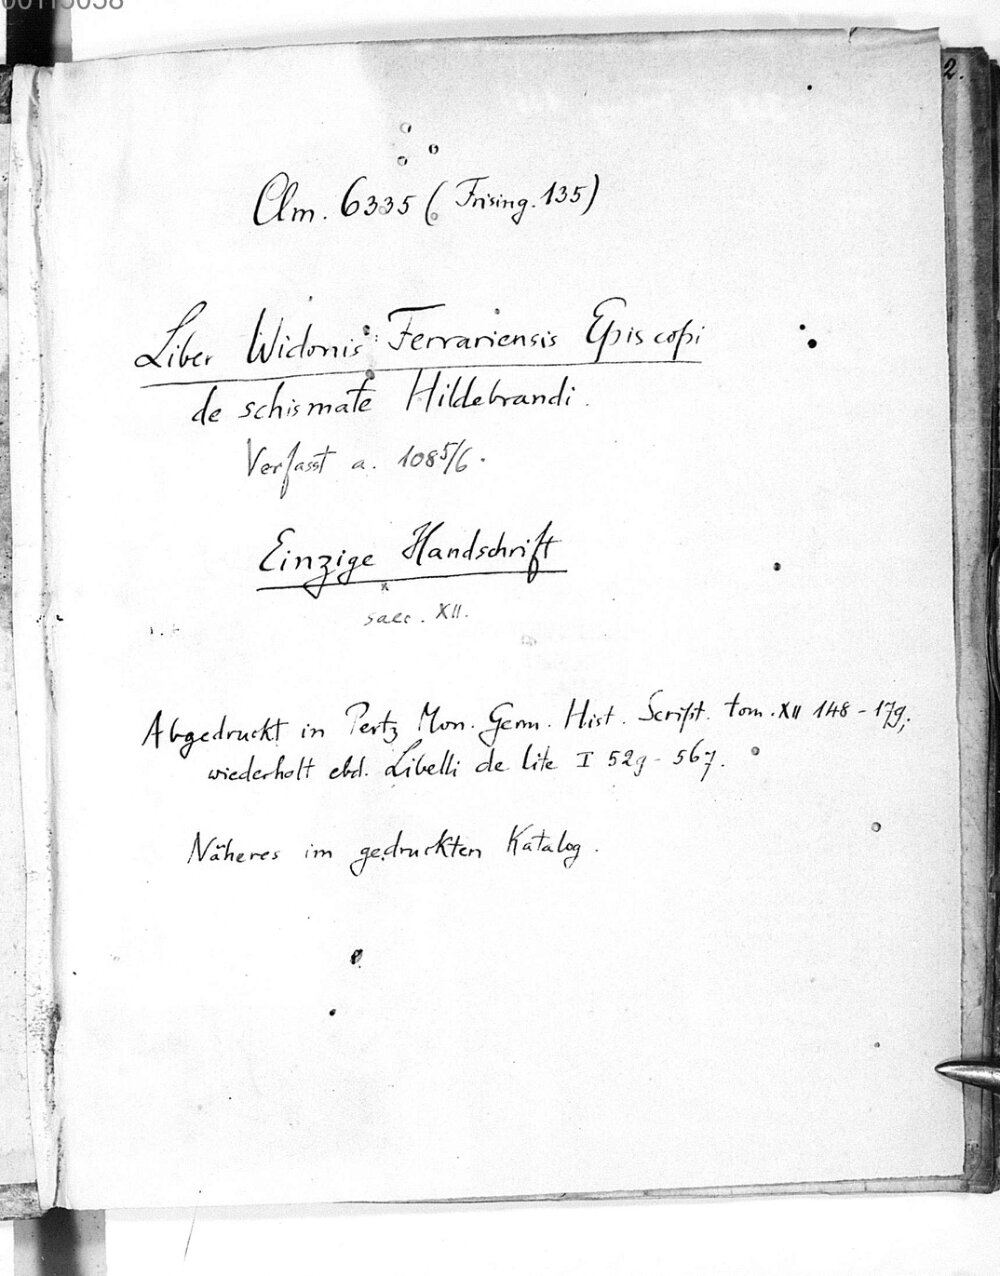 2.
Clm. 6335 (Frising. 135)
Liber Widonis Ferrariensis Episcopi
de schismate Hildebrandi.
Verfasst a. 1085/6.
Einzige Handschrift
saec. XII.
Abgedruckt in Pertz Mon. Germ. Hist. Script. tom. XII 148-179;
wiederholt ebd. Libelli de lite I 529-567.
Näheres im gedruckten Katalog.